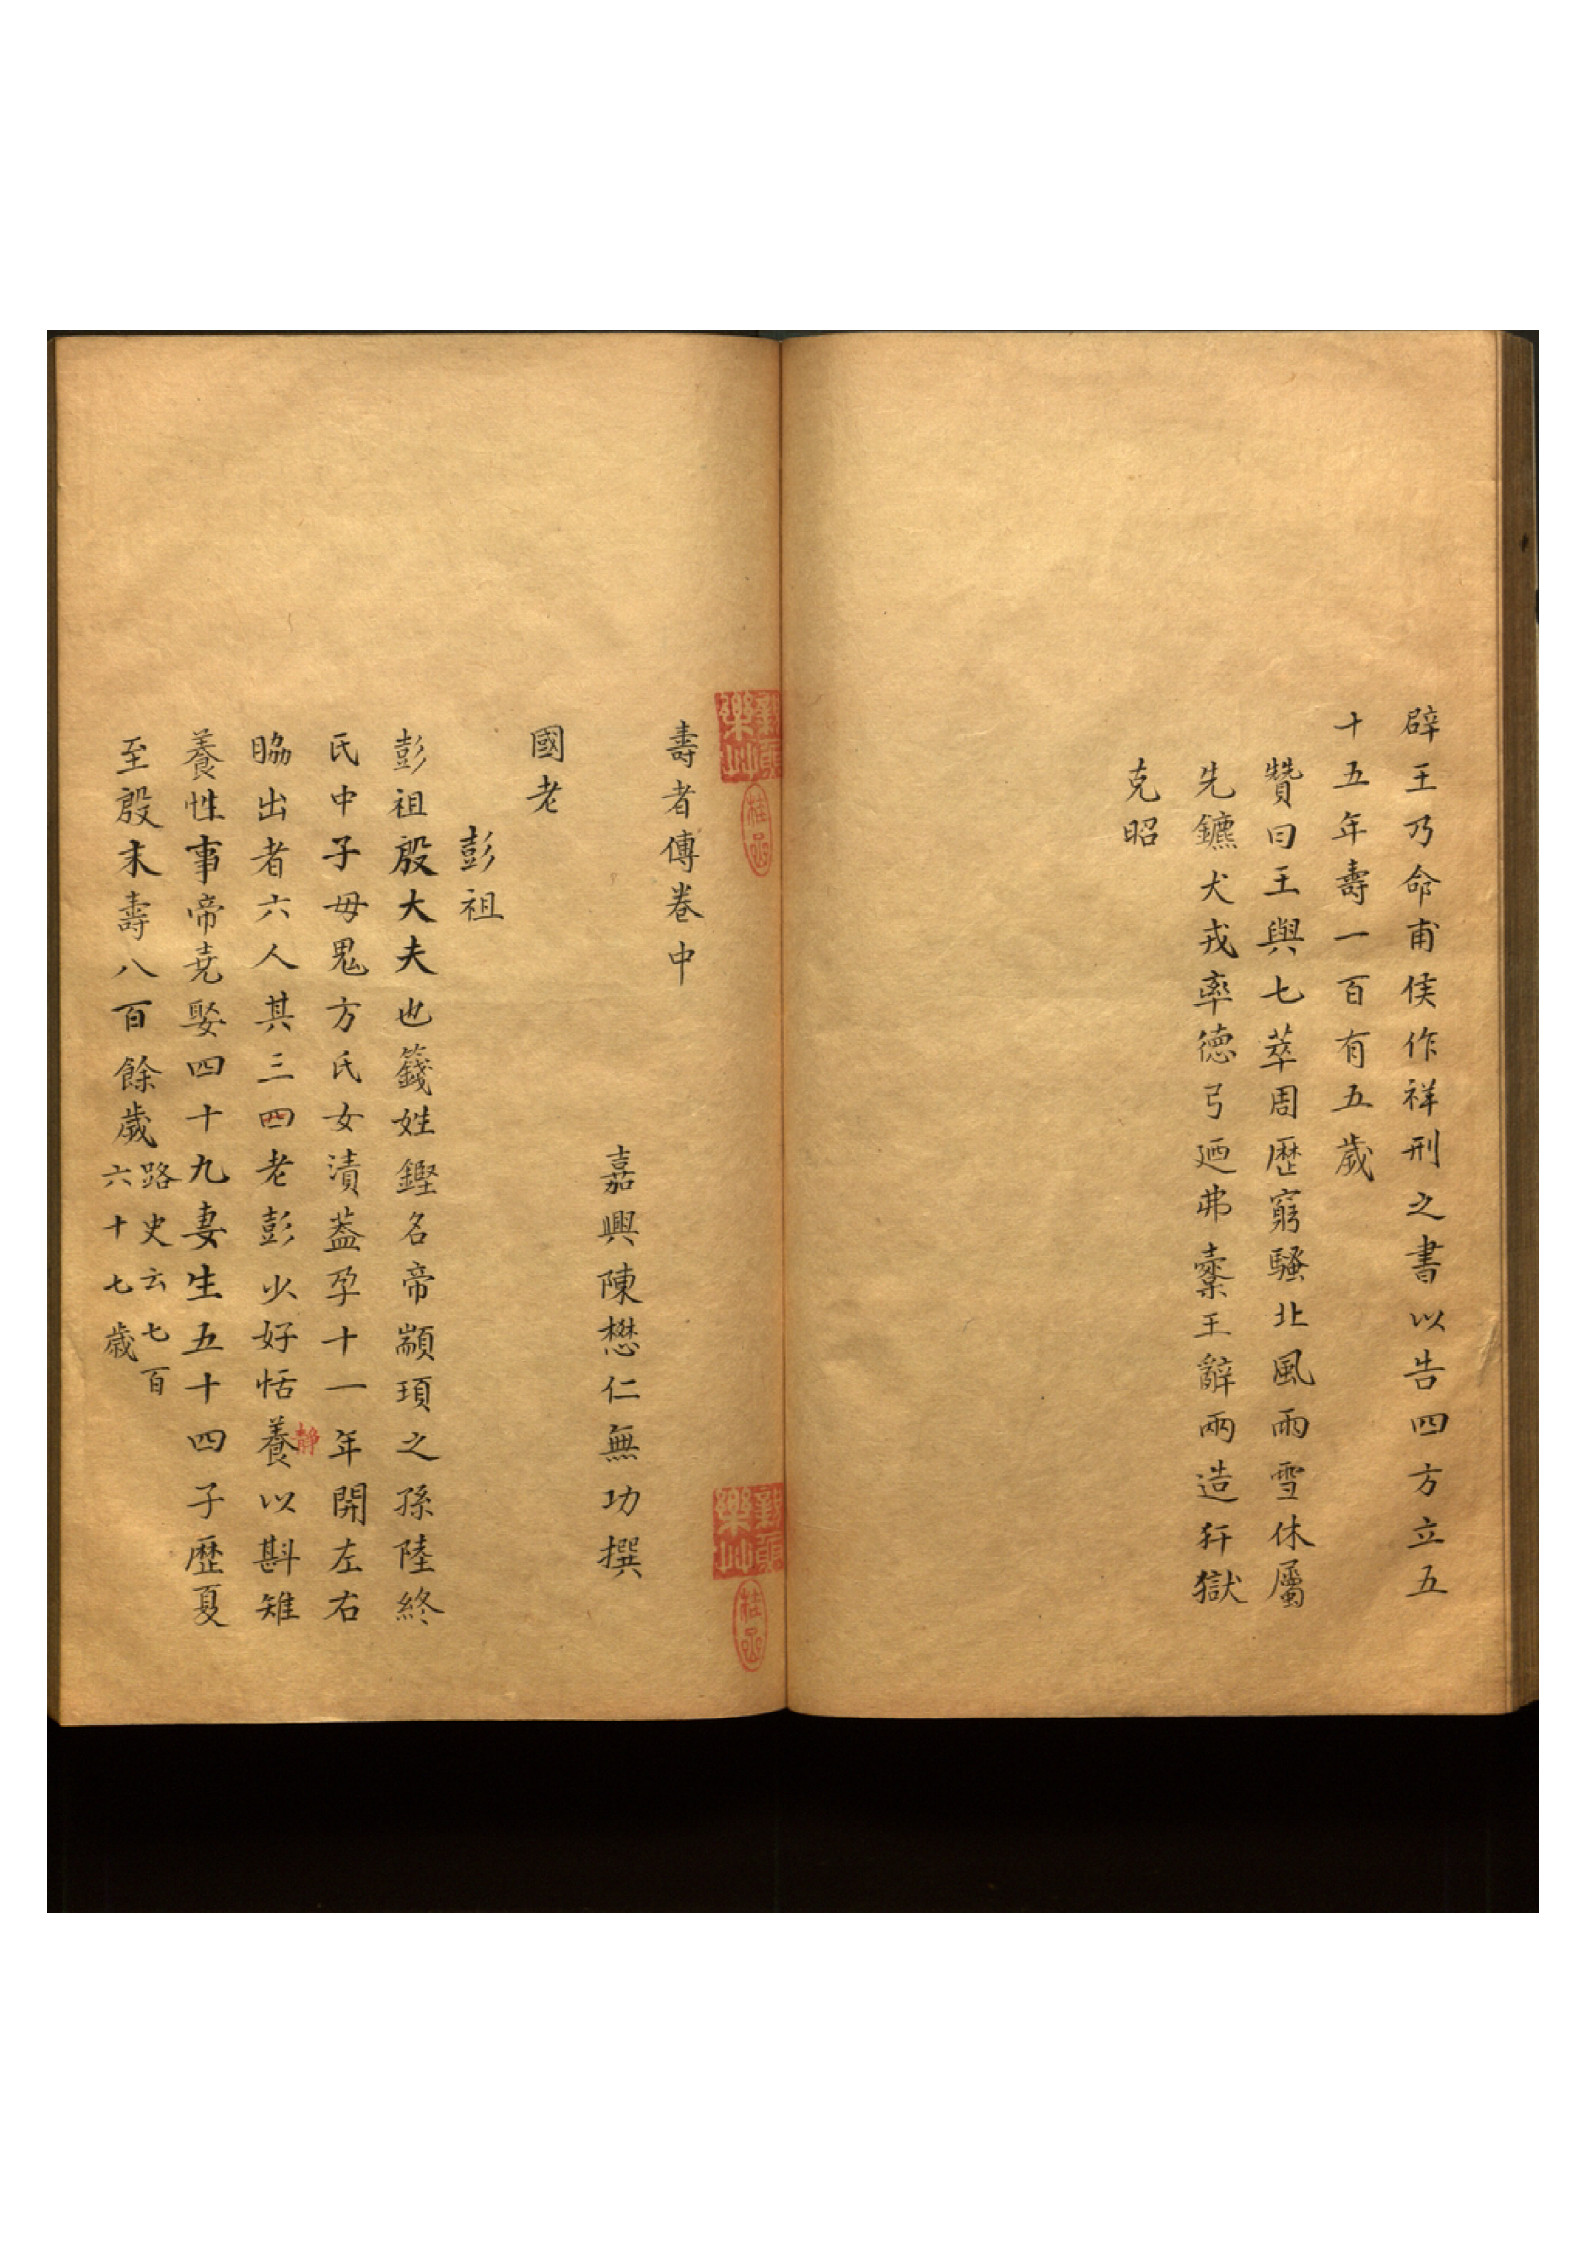 辟王乃命甫侯作祥刑之書以告四方立五
十五年壽一百有五歲
贊曰王與七萃周歷窮騷北風雨雪休屬
先鑣犬戎率德弓迺弗櫜王辭兩造犴獄
克昭
壽者傳卷中
嘉興陳懋仁無功撰
國老
彭祖
彭祖殷大夫也籛姓鏗名帝顓頊之孫陸終
氏中子母鬼方氏女漬蓋孕十一年開左右
脇出者六人其三四老彭少好恬養以斟雉
靜
養性事帝堯娶四十九妻生五十四子歷夏
至殷末壽八百餘歲路史云七百
六十七歲